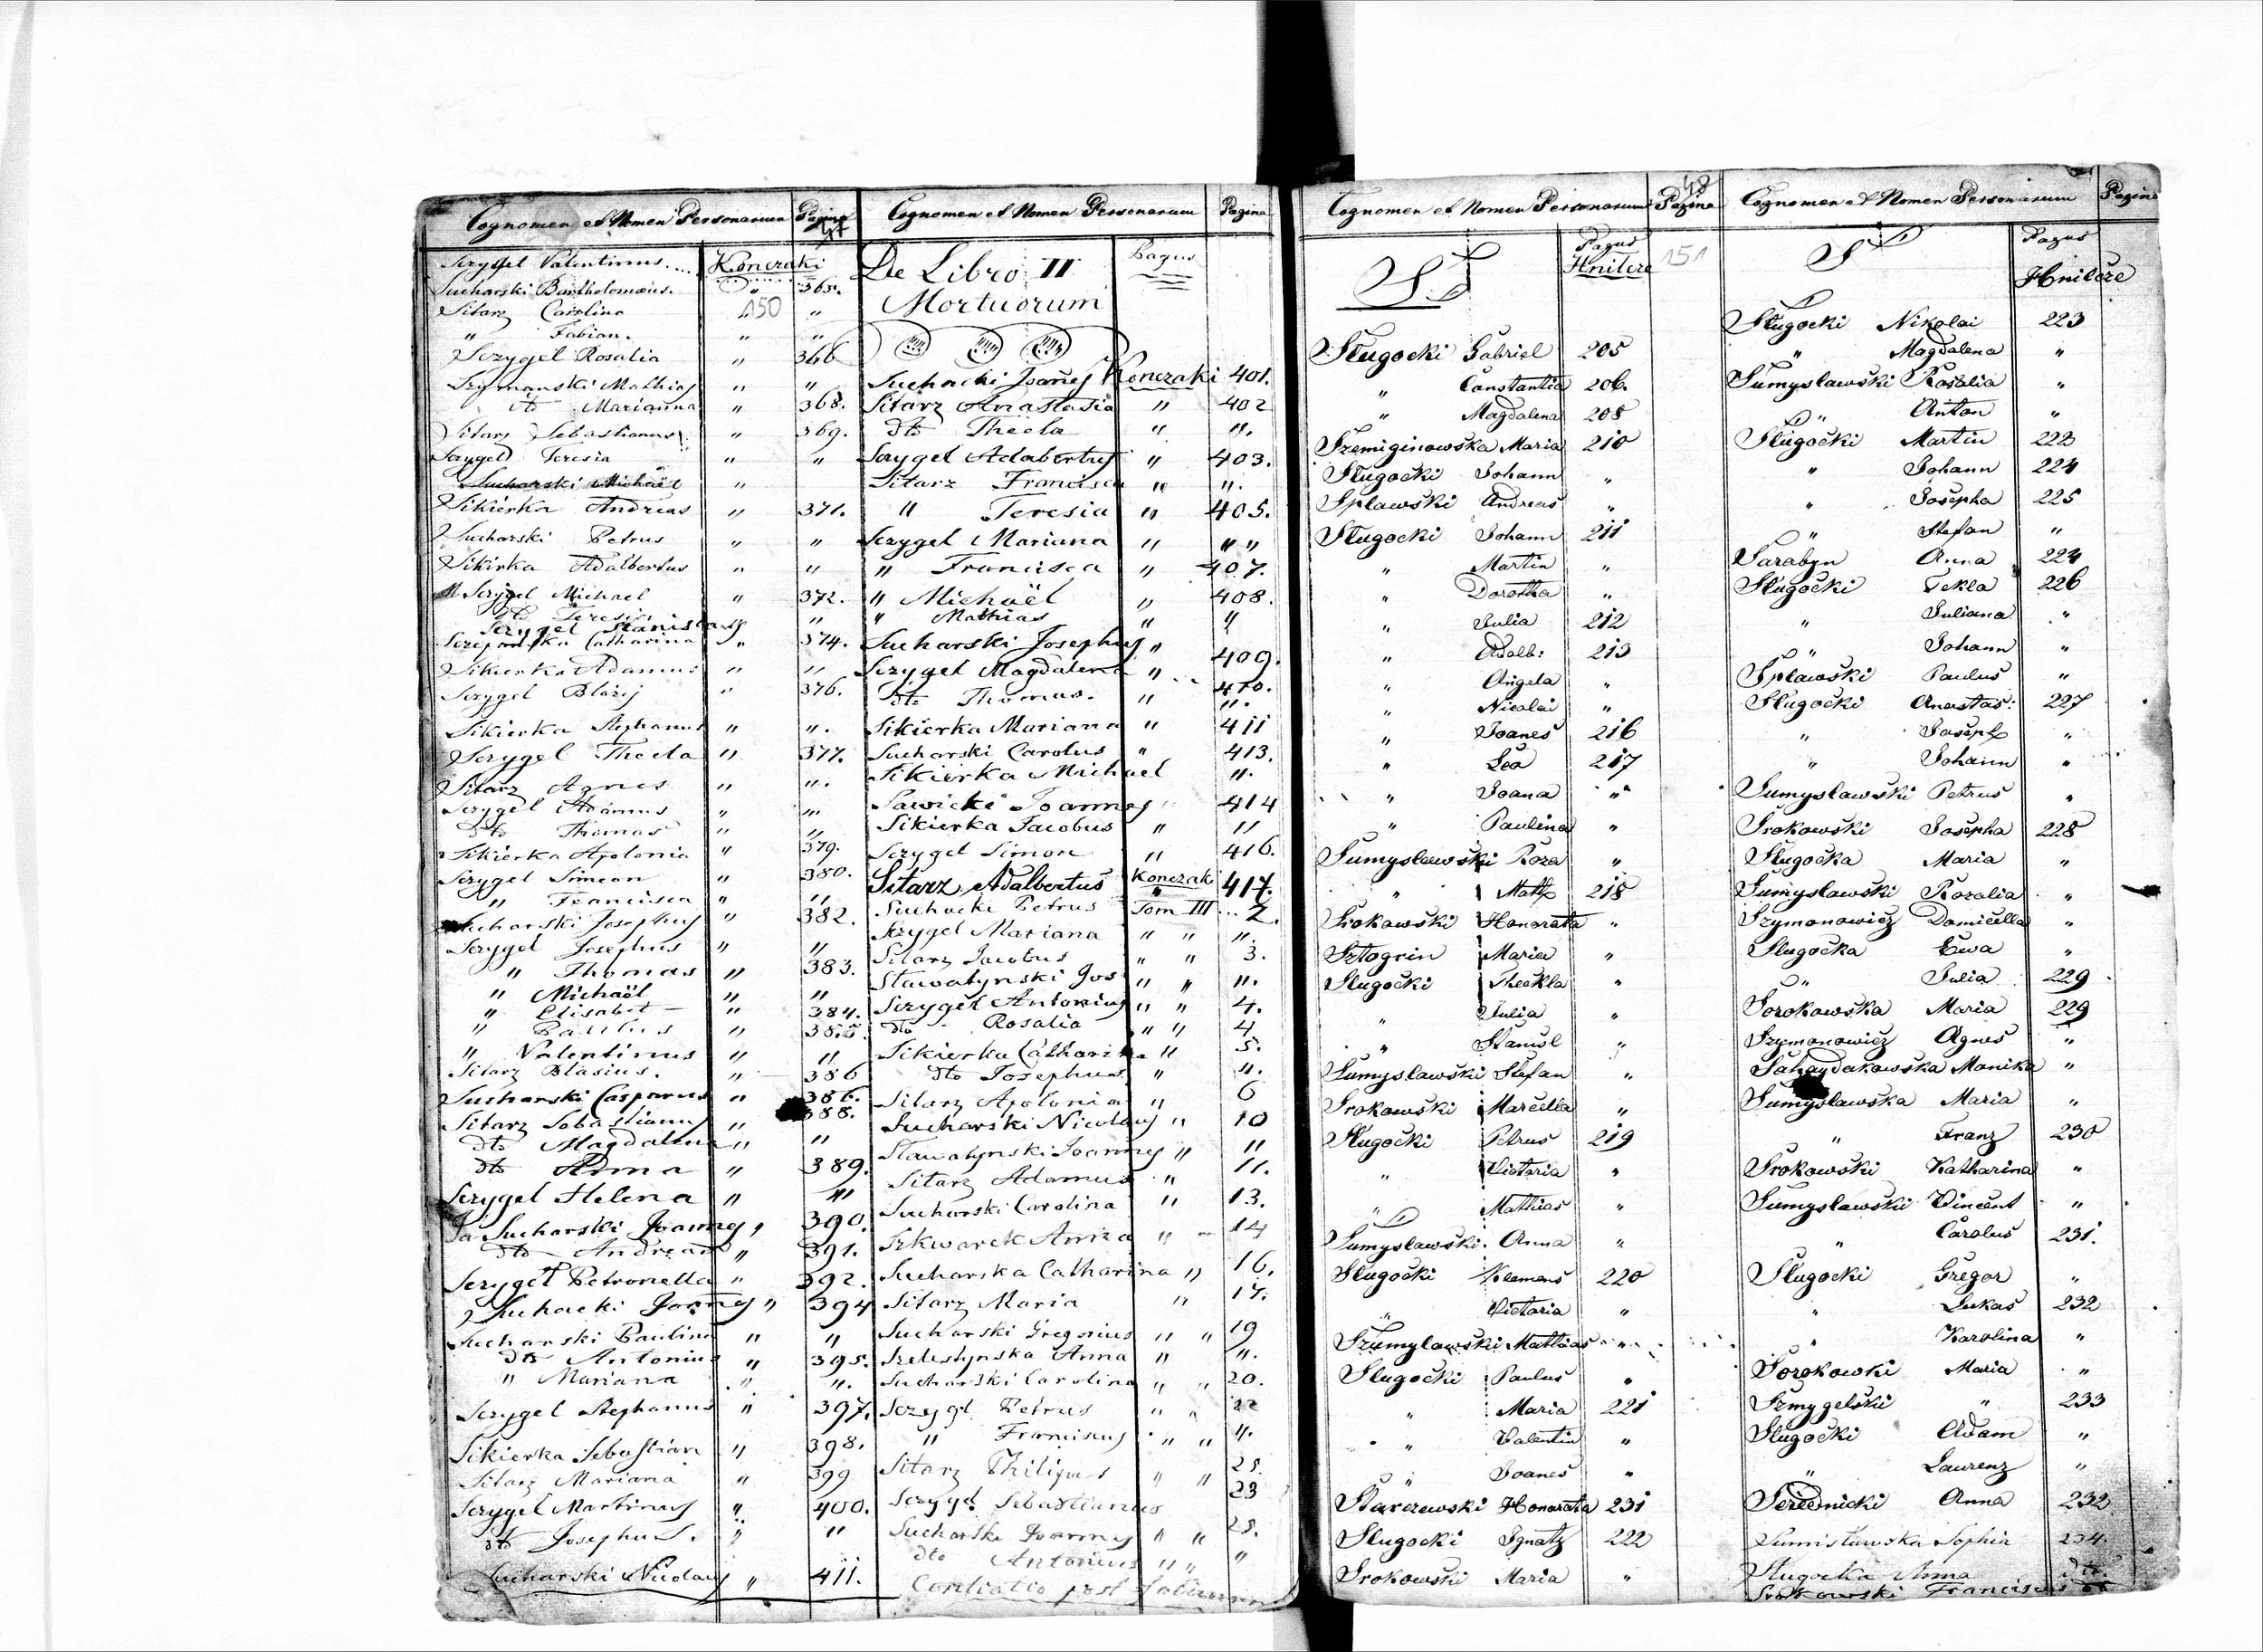 Cognomen et Nomen Personarum Pagina 47
Szygel Valentinus Konczaki
Sucharski Bartholomaeus. " 365.
Sitarz Carolina 150 "
" Fabian. " "
Szygel Rosalia " 366
Szymanski Mathias " "
dto Marianna " 368.
Sitarz Sebastianus " 369.
Szygel Teresia " "
Sucharski Michaël "
Sikierka Andreas " 371.
Sucharski Petrus " "
Sikirka Adalbertus " "
Szygel Michael " 372.
dto Teresia " "
Szygel Stanislaus
Catharina " 374.
Sikierka Adamus " "
Szygel Blażej " 376.
Sikierka Stephanus " ".
Szygel Thecla " 377.
Sitarz Agnes " ".
Szygel Adamus " "
dto Thomas " "
Sikierka Apolonia " 379.
Szygel Simeon " 380.
" Francisca " "
Sucharski Josephus " 382.
Szygel Josephus " "
" Thomas " 383.
" Michaël " "
" Elisabet " 384.
" Paulus " 385.
" Valentinus " "
Sitarz Blasius. " 386
Sucharski Casparus " 386.
Sitarz Sebastianus " 388.
dto Magdalena " "
dto Anna " 389.
Szygel Helena " "
Sucharski Joannes " 390.
dto Andreas " 391.
Szygel Petronella " 392.
Suchacki Joannes " 394
Sucharski Paulina " "
dto Antonius " 395.
" Mariana " ".
Szygel Stephanus " 397.
Sikierka Sebastian " 398.
Sitarz Mariana " 399
Szygel Martinus " 400.
dto Josephus. " "
Sucharski Nicolaus " 411.
Cognomen et Nomen Personarum Pagina
De Libro II Pagus
Mortuorum
Suchacki Joanes Konczaki 401.
Sitarz Anastasia " 402
dto Thecla " ".
Szygel Adalbertus " 403.
Sitarz Francisca " ".
" Teresia " 405.
Szygel Mariana " " "
" Francisca " 407.
" Michaël " 408.
" Mathias " "
Sucharski Josephus "
Szygel Magdalena " 409.
dto Thomas. " 410.
".
Sikierka Mariana " 411
Sucharski Carolus " 413.
Sikierka Michael ".
Sawicki Joannes " 414
Sikierka Jacobus " "
Szygel Simon " 416.
Sitarz Adalbertus Konczaki 417.
Suchacki Petrus Tom III 2.
Szygel Mariana " " ".
Sitarz Jacobus " " 3.
Stawatynski Jos " " ".
Szygel Antonius " " 4.
dto Rosalia " " 4
Sikierka Catharina " 5.
dto Josephus " ".
Sitarz Apolonia " 6
Sucharski Nicolaus " 10
Stawatynski Joannes " "
Sitarz Adamus " 11.
Sucharski Carolina " 13.
Szkwarek Anna " 14
Sucharska Catharina " 16.
Sitarz Maria " 17.
Sucharski Gregorius " " 19
Szelestynska Anna " ".
Sucharski Carolina " " 20.
Szygl Petrus " " 22
" Franciscus " " ".
Sitarz Philipus " " 25.
Szygl Sebastianus 23
Sucharski Joannes " " 25.
dto Antonius " " "
Cognomen et Nomen Personarum Pagina 48
S Pagus Hnilcze 151
Sługocki Gabriel 205
" Constantia 206.
" Magdalena 208
Szemiginowska Maria 210
Sługocki Johann "
Spławski Andreas "
Sługocki Johann 211
" Martin "
" Dorotha "
" Julia 212
" Adalb: 213
" Angela "
" Nicolai "
" Joanes 216
" Lea 217
" Joana "
" Paulina "
Sumyslawski Roza "
" Math 218
Srokowski Honorata "
Sztogrin Maria "
Slugocki Theckla "
" Julia "
" Stanisl "
Sumyslawski Stefan "
Srokowski Marcella "
Sługocki Petrus 219
" Victoria "
" Mathias "
Sumyslawski Anna "
Sługocki Klemens 220
" Victoria "
Szumylawski Mathias "
Slugocki Paulus "
" Maria 221
" Valentin "
" Joanes "
Starczewski Honorata 231
Slugocki Ignatz 222
Srokowski Maria "
Cognomen et Nomen Personarum Pagina
S Pagus
Hnilcze
Sługocki Nikolai 223
" Magdalena "
Sumyslawski Rosalia "
" Anton "
Sługocki Martin 223
" Johann 224
" Josepha 225
" Stefan "
Sarabyn Anna 224
Sługocki Tekla 226
" Juliana "
" Johann "
Spławski Paulus "
Sługocki Anastas: 227
" Joseph "
" Johann "
Sumyslawski Petrus "
Srokowski Josepha 228
Sługocka Maria "
Sumyslawski Rozalia "
Szymonowicz Domicella "
Slugocka Ewa "
" Julia 229
Sorokowska Maria 229
Szymonowicz Agnes "
Sahaydakowska Monika "
Sumyslawska Maria "
" Franz 230
Srokowski Katharina "
Sumyslawski Vincent "
" Carolus 231.
Sługocki Gregor "
" Lukas 232
" Karolina "
Sorokowski Maria "
Szmygelski " 233
Sługocki Adam "
" Laurenz "
Serednicki Anna 232
Sumisławska Sophia 234.
Sługocka Anna dto.
Srokowski Franciscus dto